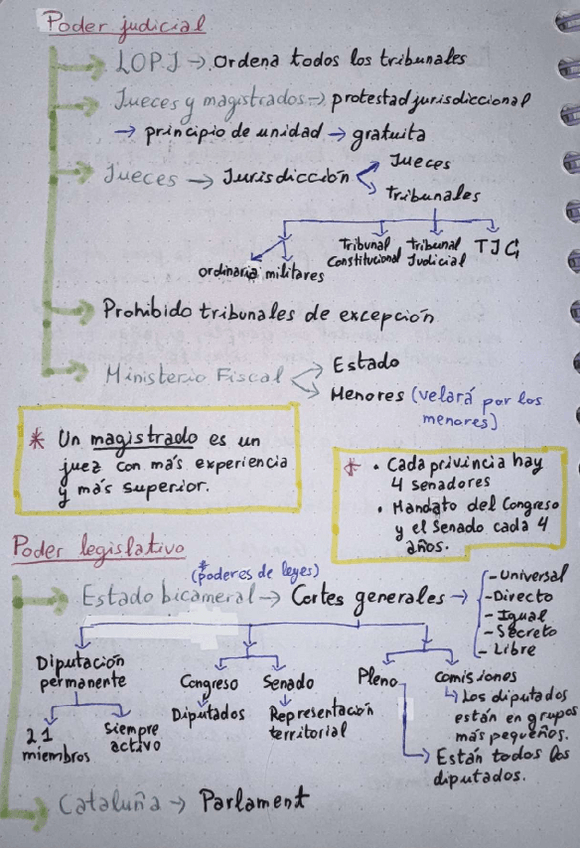 Poder judicial
LOPJ → Ordena todos los tribunales
Jueces y magistrados → protestad jurisdiccional
→ principio de unidad → gratuita
Jueces → Jurisdicción
Jueces
Tribunales
ordinaria militares
Tribunal Constitucional
Tribunal Judicial
TJC
Prohibido tribunales de excepción
Ministerio Fiscal
Estado
Menores (velará por los
menores)
* Un magistrado es un
juez con más experiencia
y más superior.
* • Cada privincia hay
4 senadores
• Mandato del Congreso
y el Senado cada 4
años.
Poder legislativo
*
(poderes de leyes)
Estado bicameral → Cortes generales →
- Universal
- Directo
- Igual
- Secreto
- Libre
Diputación
permanente
21
miembros
Siempre
activo
Congreso
Diputados
Senado
Representación
territorial
Pleno
Comisiones
↳ Los diputados
están en grupos
más pequeños.
→ Están todos los
diputados.
Cataluña → Parlament